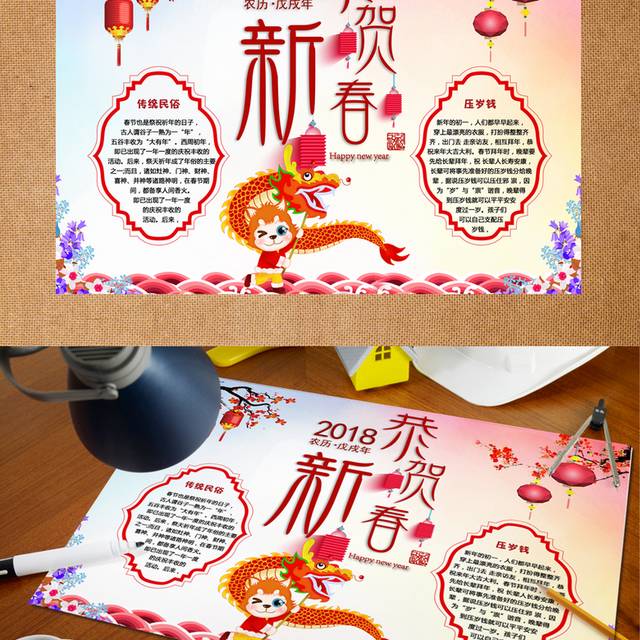 农历·戊戌年
贺
新
春
Happy new year
传统民俗
春节也是祭祝祈年的日子，
古人谓谷子一熟为一“年”，
五谷丰收为“大有年”。西周初年，
即已出现了一年一度的庆祝丰收的
活动。后来，祭天祈年成了年俗的主要
之一;而且，诸如灶神、门神、财神、
喜神、井神等诸路神明，在春节期
间，都备享人间香火。
即已出现了一年一度
的庆祝丰收的
活动。后来，
压岁钱
新年的初一，人们都早早起来，
穿上最漂亮的衣服，打扮得整整齐
齐，出门去 走亲访友，相互拜年，恭
祝来年大吉大利。春节拜年时，晚辈要
先给长辈拜年，祝 长辈人长寿安康，
长辈可将事先准备好的压岁钱分给晚
辈，据说压岁钱可以压住邪 祟，因
为“岁”与“祟”谐音，晚辈得
到压岁钱就可以平平安安
度过一岁。孩子们
可以自己支配压
岁钱，
2018
农历·戊戌年
恭
贺
新
春
Happy new year
传统民俗
春节也是祭祝祈年的日子，
古人谓谷子一熟为一“年”，
五谷丰收为“大有年”。西周初年，
即已出现了一年一度的庆祝丰收的
活动。后来，祭天祈年成了年俗的主要
之一;而且，诸如灶神、门神、财神、
喜神、井神等诸路神明，在春节期
间，都备享人间香火。
即已出现了一年一度
的庆祝丰收的
活动。后来，
压岁钱
新年的初一，人们都早早起来，
穿上最漂亮的衣服，打扮得整整齐
齐，出门去 走亲访友，相互拜年，恭
祝来年大吉大利。春节拜年时，晚辈要
先给长辈拜年，祝 长辈人长寿安康，
长辈可将事先准备好的压岁钱分给晚
辈，据说压岁钱可以压住邪 祟，因
为“岁”与“祟”谐音，晚辈得
到压岁钱就可以平平安安
度过一岁。孩子们
可以自己支配压